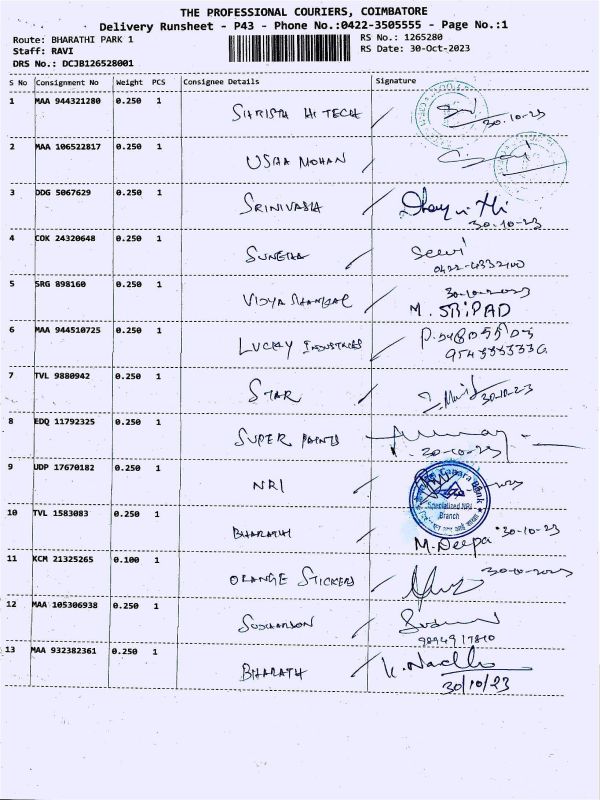 THE PROFESSIONAL COURIERS, COIMBATORE
Delivery Runsheet - P43 - Phone No.:0422-3505555 - Page No.:1
Route: BHARATHI PARK 1 RS No.: 1265280
Staff: RAVI RS Date: 30-Oct-2023
DRS No.: DCJB126528001
S No Consignment No Weight PCS Consignee Details Signature
1 MAA 944321280 0.250 1 SHRISTA HI TECH 30.10-23
2 MAA 106522817 0.250 1 USHA MOHAN
3 DDG 5067629 0.250 1 SRINIVASA
30.10-23
4 COK 24320648 0.250 1 SUNETHA
5 SRG 898160 0.250 1 VIDYA SHANKAR 30-10-2023
M. SRIPAD
6 MAA 944510725 0.250 1 LUCKY INDUSTRIES
7 TVL 9880942 0.250 1 STAR 30-10-23
8 EDQ 11792325 0.250 1 SUPER PAINTS
30-10-23
9 UDP 17670182 0.250 1 NRI
Canara Bank
Specialized NRI
Branch
10 TVL 1583083 0.250 1 BHARATHI 30-10-23
M. Deepa
11 KCM 21325265 0.100 1 ORANGE STICKERS 30-10-2023
12 MAA 105306938 0.250 1 SUDHARSON
9894917810
13 MAA 932382361 0.250 1 BHARATH
30/10/23